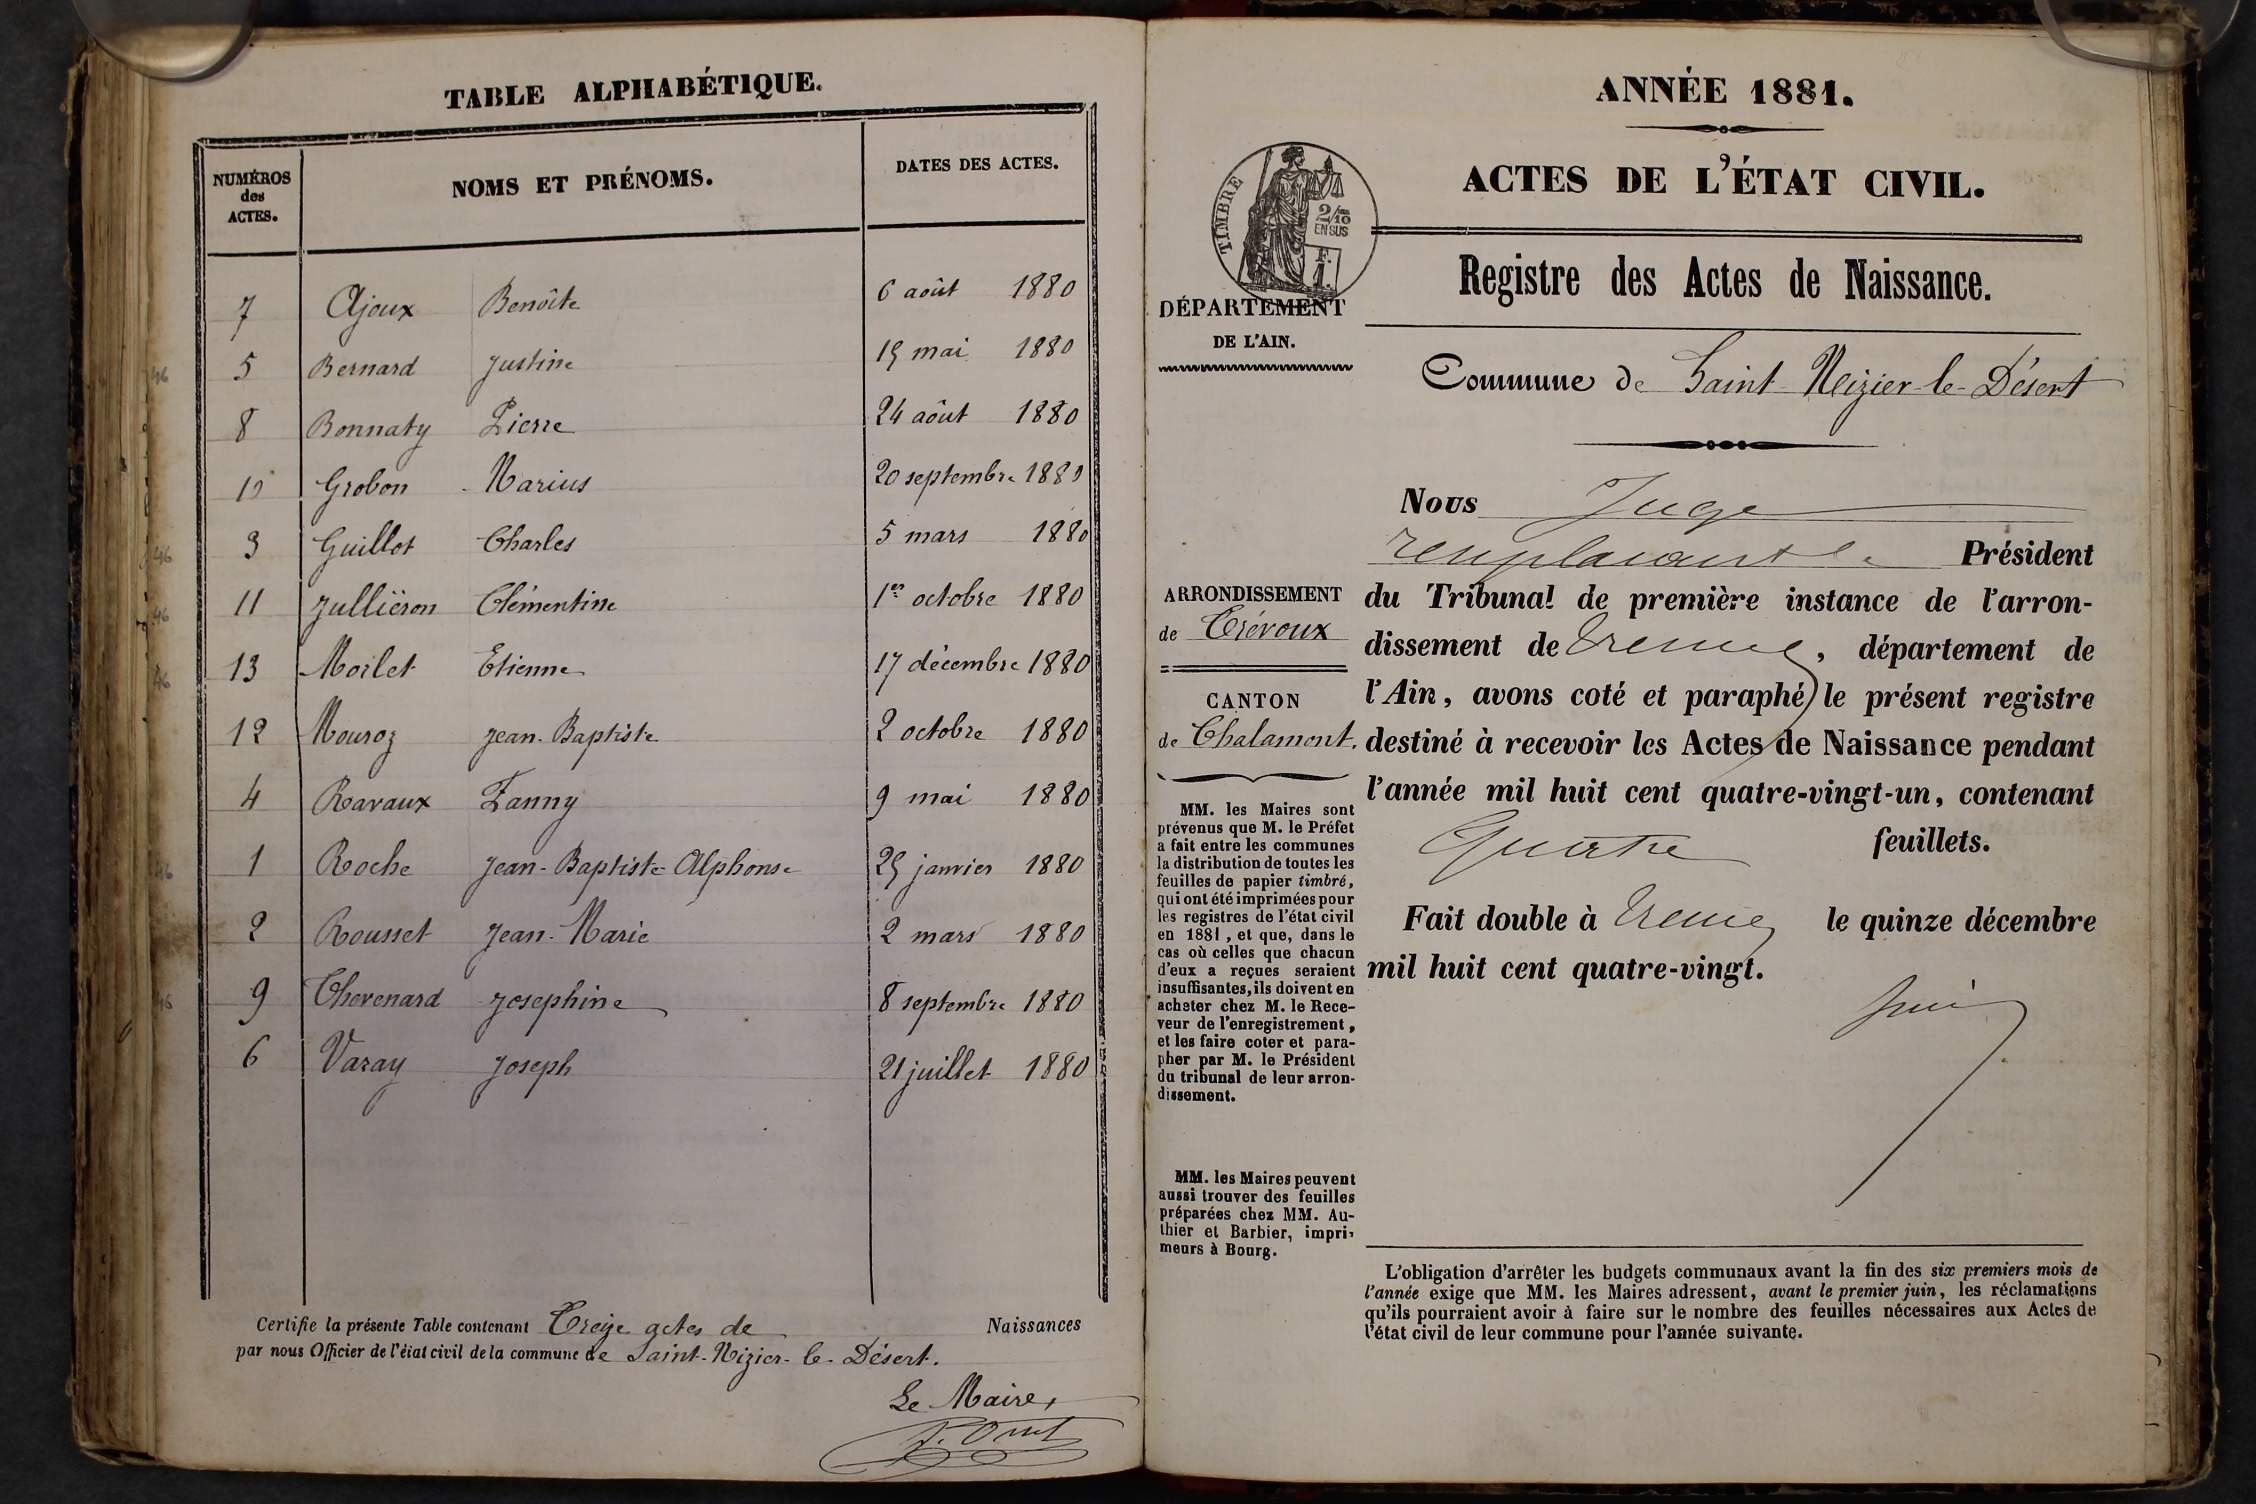 TABLE ALPHABÉTIQUE.
NUMÉROS
des
ACTES.
NOMS ET PRÉNOMS.
DATES DES ACTES.
7 Ajoux Benoîte 6 août 1880
5 Bernard Justine 15 mai 1880
8 Bonnaty Pierre 24 août 1880
10 Grobon Marius 20 septembre 1880
3 Guillot Charles 5 mars 1880
11 Julliëron Clémentine 1er octobre 1880
13 Morlet Etienne 17 décembre 1880
12 Mouroz Jean-Baptiste 2 octobre 1880
4 Ravaux Fanny 9 mai 1880
1 Roche Jean-Baptiste-Alphonse 25 janvier 1880
2 Rousset Jean-Marie 2 mars 1880
9 Thevenard Josephine 8 septembre 1880
6 Varay Joseph 21 juillet 1880
Certifie la présente Table contenant Treize actes de Naissances
par nous Officier de l'état civil de la commune de Saint-Nizier-le-Désert.
Le Maire,
ANNÉE 1881.
ACTES DE L'ÉTAT CIVIL.
TIMBRE
2/10
EN SUS
F.
1.
Registre des Actes de Naissance.
DÉPARTEMENT
DE L'AIN.
Commune de Saint-Nizier-le-Désert
Nous Juge
remplacant le Président
du Tribunal de première instance de l'arron-
dissement de Trevoux, département de
l'Ain, avons coté et paraphé le présent registre
destiné à recevoir les Actes de Naissance pendant
l'année mil huit cent quatre-vingt-un, contenant
Quatre feuillets.
Fait double à Trevoux le quinze décembre
mil huit cent quatre-vingt.
ARRONDISSEMENT
de Trévoux
CANTON
de Chalamont.
MM. les Maires sont
prévenus que M. le Préfet
a fait entre les communes
la distribution de toutes les
feuilles de papier timbré,
qui ont été imprimées pour
les registres de l'état civil
en 1881, et que, dans le
cas où celles que chacun
d'eux a reçues seraient
insuffisantes, ils doivent en
acheter chez M. le Rece-
veur de l'enregistrement,
et les faire coter et para-
pher par M. le Président
du tribunal de leur arron-
dissement.
MM. les Maires peuvent
aussi trouver des feuilles
préparées chez MM. Au-
thier et Barbier, impri-
meurs à Bourg.
L'obligation d'arrêter les budgets communaux avant la fin des six premiers mois de
l'année exige que MM. les Maires adressent, avant le premier juin, les réclamations
qu'ils pourraient avoir à faire sur le nombre des feuilles nécessaires aux Actes de
l'état civil de leur commune pour l'année suivante.